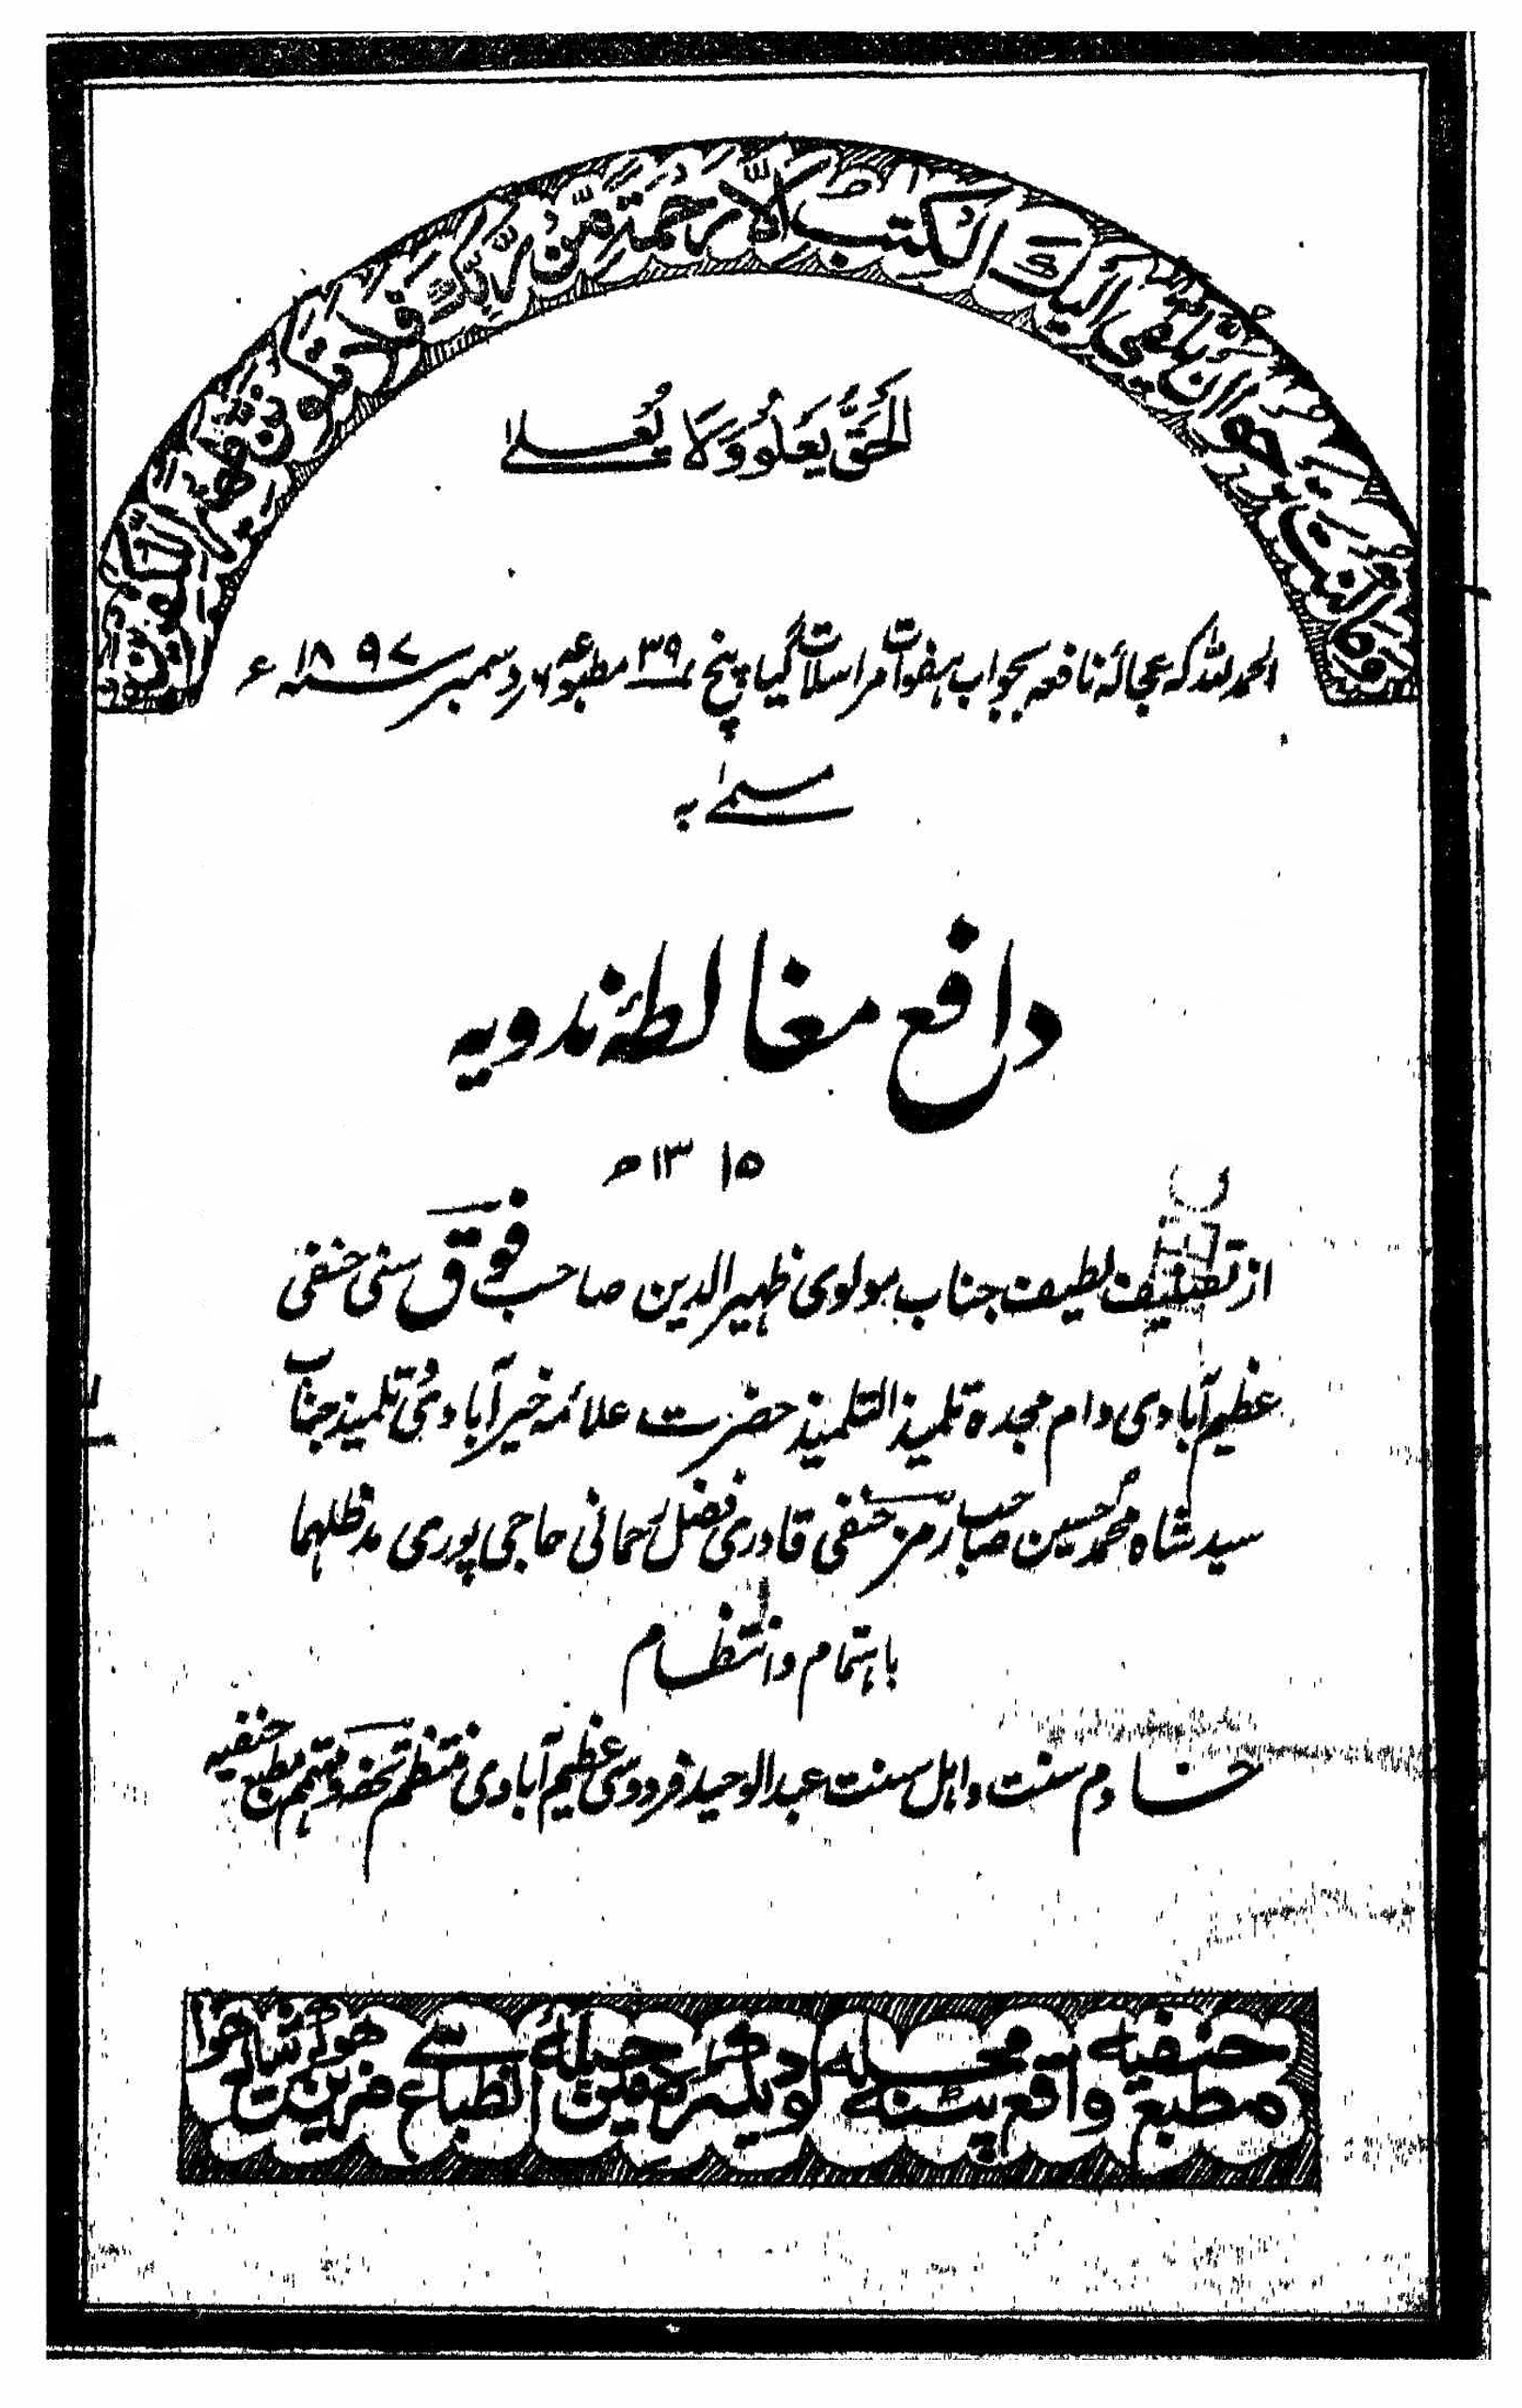 وما كنت ترجوا ان يلقى اليك الكتب الا رحمة من ربك فلا تكونن ظهيرا للكفرين
اَلحَقُّ یَعلُو وَلَا یُعلےٰ
الحمد للہ کہ عجالۂ نافعہ بجواب ہفوات مراسلات گیا پنچ نمبر ۳۹ مطبوعہ ۶ دسمبر سنہ ۱۸۹۷ء
مسمےٰ بہ
دافع مغالطۂ ندویہ
۱۳۱۵ھ
از تصنیف لطیف جناب مولوی ظہیر الدین صاحب فوق سنی حنفی
عظیم آبادی دام مجدہ تلمیذ التلمیذ حضرت علامۂ خیر آبادی تلمیذ جناب
سید شاہ محمد حسین صاحب رمز حنفی قادری فضل رحمانی حاجی پوری مد ظلہما
باہتمام وانتظام
خادم سنت واہل سنت عبد الوحید فردوسی عظیم آبادی منتظم تحفہ ومہتمم مطبع حنفیہ
مطبع حنفیہ واقع پٹنہ محلہ لودیکٹرہ میں حیلۂ انطباع سے مزین ہوکر شائع ہوا